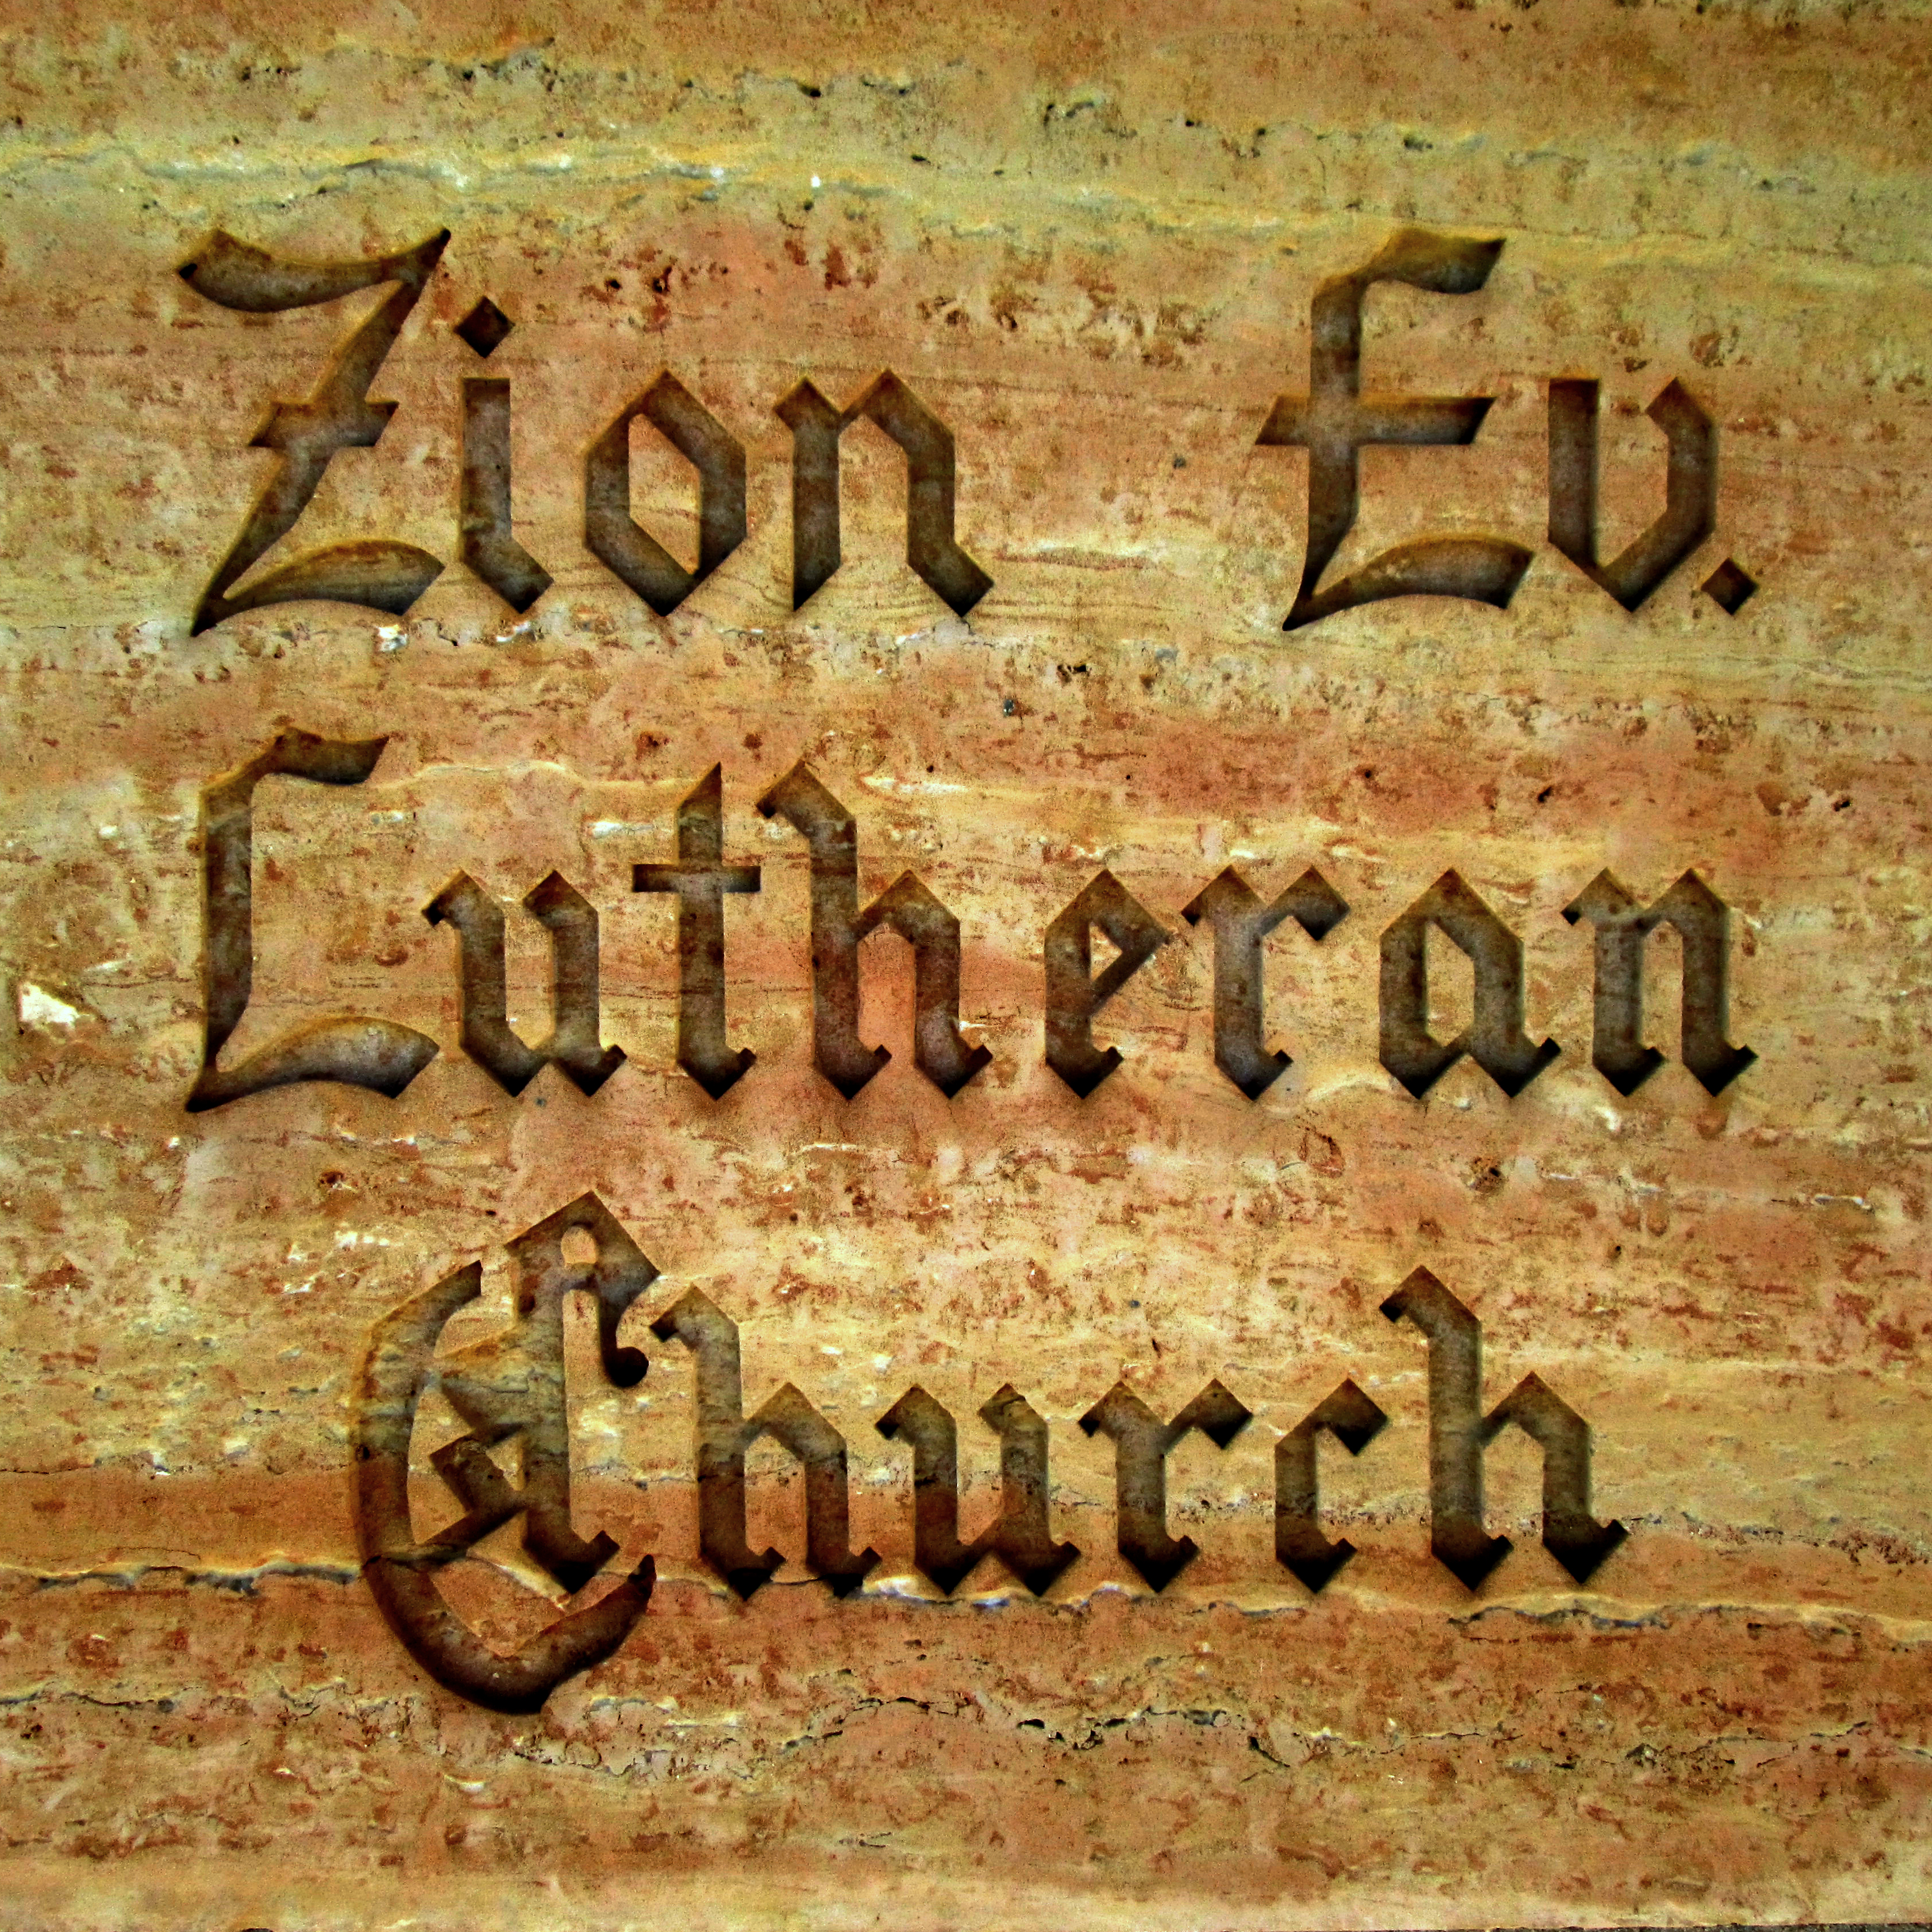 Zion Ev.
Lutheran
Church